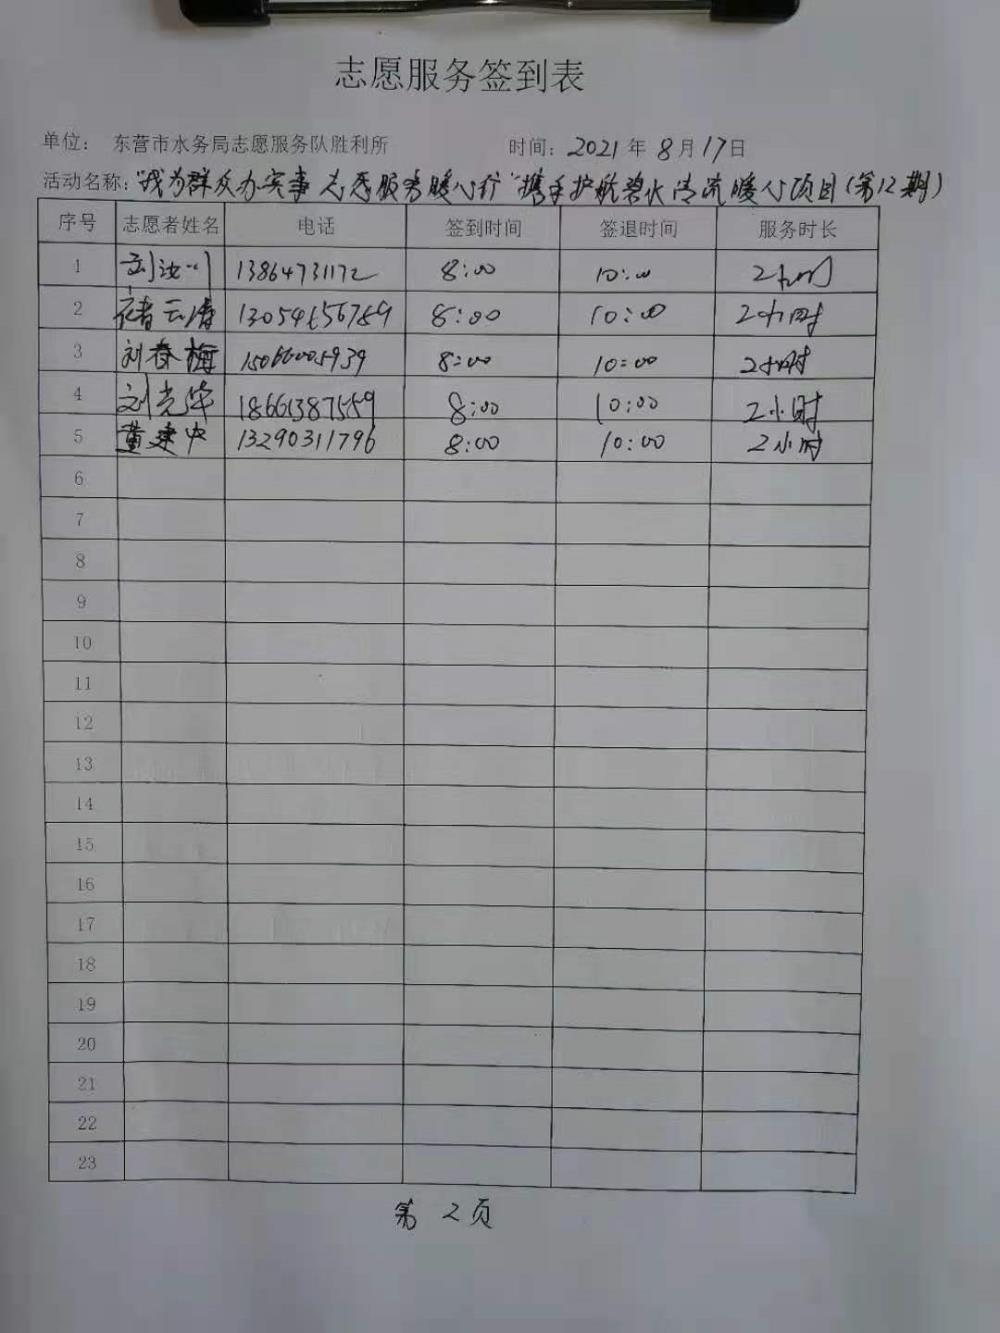 志愿服务签到表
单位： 东营市水务局志愿服务队胜利所 时间：2021年8月17日
活动名称："我为群众办实事 志愿服务暖心行"携手护航碧水清流暖心项目(第12期)
序号 志愿者姓名 电话 签到时间 签退时间 服务时长
1 刘汝川 13864731172 8:00 10:00 2小时
2 褚云清 13054656789 8:00 10:00 2小时
3 刘春梅 15066005939 8:00 10:00 2小时
4 刘光华 18661387559 8:00 10:00 2小时
5 董建中 13290311796 8:00 10:00 2小时
6
7
8
9
10
11
12
13
14
15
16
17
18
19
20
21
22
23
第2页